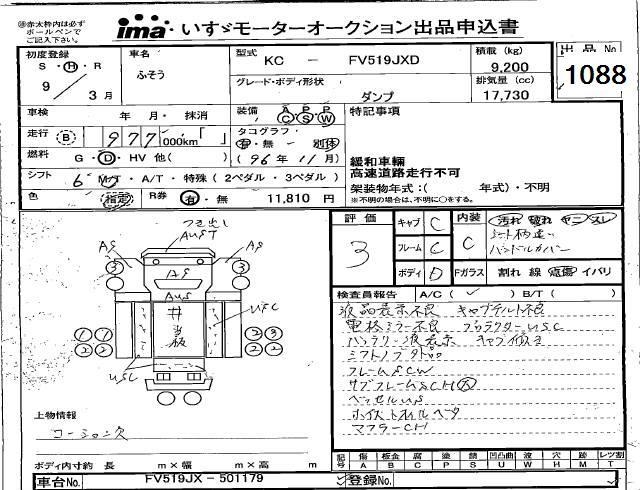 ㊟赤太枠内は必ず
ボールペンで
ご記入下さい。
ima いすゞモーターオークション出品申込書
出品No
1088
初度登録
S・H・R
9年 3月
車名
ふそう
型式
KC - FV519JXD
積載(kg)
9,200
グレード・ボディ形状
ダンプ
排気量(cc)
17,730
車検 年 月・抹消
装備 AC PS PW
特記事項
走行 B 977,000km「 」
タコグラフ
有・無 別体
燃料 G・D・HV 他( )
(96年 11月)
緩和車輛
高速道路走行不可
シフト 6 M/T・A/T・特殊(2ペダル・3ペダル)
架装物年式:( 年式)・不明
※不明の場合は、不明に○をする。
色 指定 R券 有・無 11,810 円
評価
3
キャブ C
フレーム C
ボディ D
内装
C
汚れ 破れ ヤニ スレ
シート柄違い
ハンドルカバー
Fガラス 割れ 線 飛傷 イパリ
検査員報告 A/C(✓) B/T( )
液晶表示不良 キャブチルト不良
電格ミラー不良
バッテリー液表示
フレームSCW
サブフレームSCH
ベッセルUS
マフラーCH
つき出し
AUST
AS
AS
AS
AUS
USC
USC
3
3
1 1
2 2
2 3
2 2
上物情報
コーション欠
ボディ内寸約 長 m×幅 m×高 m
記号 傷A 板金B 腐C 塗P 錆S 凹凸曲U 波W 穴H 跡M レンズ割T
車台No. FV519JX-501179
登録No.